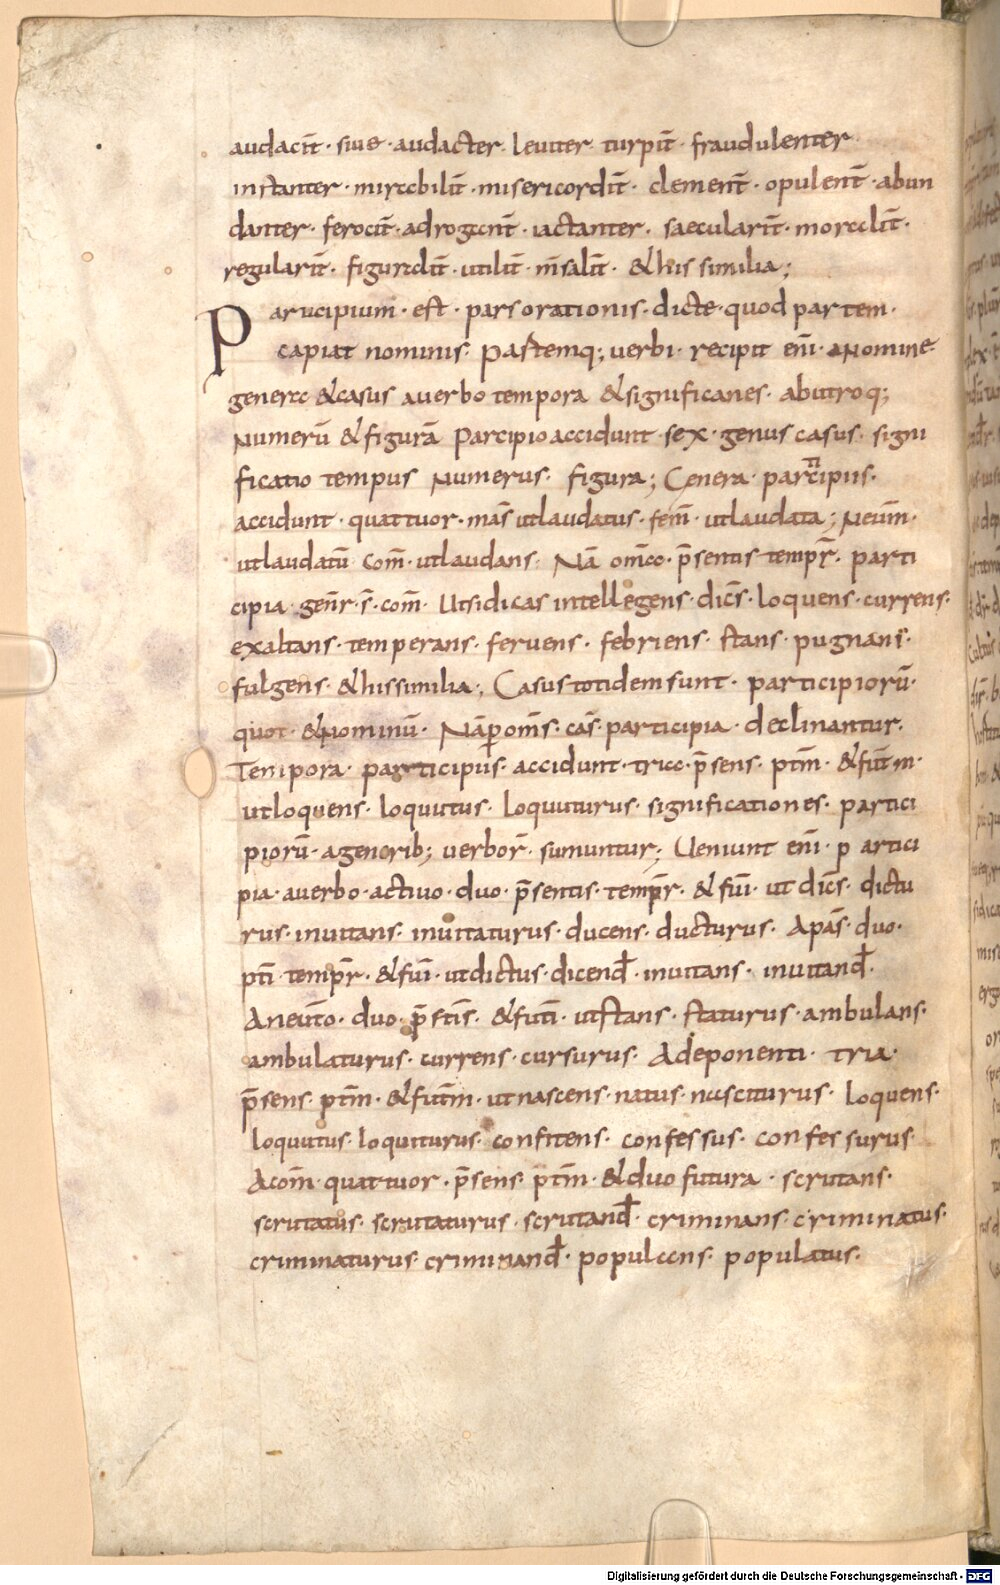 audacit̄ · siue · audacter · leuiter · turpit̄ · fraudulenter
instanter · mirabilit̄ · misericordit̄ · clement̄ · opulent̄ · abun
danter · ferocit̄ · adrogant̄ · iactanter · saecularit̄ · moralit̄ ·
regularit̄ · figuralit̄ · utilit̄ · insalit̄ · & his similia ;
Participium · est · pars orationis · dicte · quod partem ·
capiat nominis · partemq; uerbi · recipit eni · a nomine ·
genera & casus a uerbo tempora & significanes · ab utroq;
numerū & figurā Parcipio accidunt · sex · genus casus · signi
ficatio tempus numerus · figura ; Genera · parcipiis ·
ti
accidunt · quattuor · mas̄ ut laudatus · fem̄ · ut laudata ; neum̄ ·
ut laudatū com̄ · ut laudans · Nā om̄a · p̄sentis tempr̄ · parti
cipia · gen̄r · s̄ · com̄ · Ut si dicas intellegens · dics̄ · loquens · currens ·
exaltans · temperans · feruens · febriens · stans · pugnans ·
fulgens · & his similia ; Casus totidem sunt · participiorū ·
quot · & nominū · Nā p om̄s · cas̄ · participia · declinantur ·
Tempora · participiis · accidunt · tria · p̄sens · ptm̄ · & fut̄m ·
ut loquens · loquutus · loquuturus · significationes · partici
piorū · a generib; uerbor̄ · sumuntur ; Ueniunt eni · p artici
pia · a uerbo · actiuo · duo · p̄sentis · tempr̄ · & fui · ut dics̄ · dictu
rus · inuitans · inuitaturus · ducens · ducturus · A pas̄ · duo ·
pti · tempr̄ · & fui · ut dictus · dicend̄ · inuitans · inuitand̄ ·
A neuto · duo · p̄stis · & futi · ut stans · staturus · ambulans ·
ambulaturus · currens · cursurus · A deponenti · tria ·
p̄sens · ptm̄ · & fut̄m · ut nascens · natus · nasciturus · loquens ·
loquutus · loquiturus · confitens · confessus · confes surus ·
A com̄ · quattuor · p̄sens · ptm̄ · & duo futura · scrutans ·
scrutatus · scrutaturus · scrutand̄ · criminans · criminatus ·
criminaturus · criminand̄ · populans · populatus ·
Digitalisierung gefördert durch die Deutsche Forschungsgemeinschaft - DFG